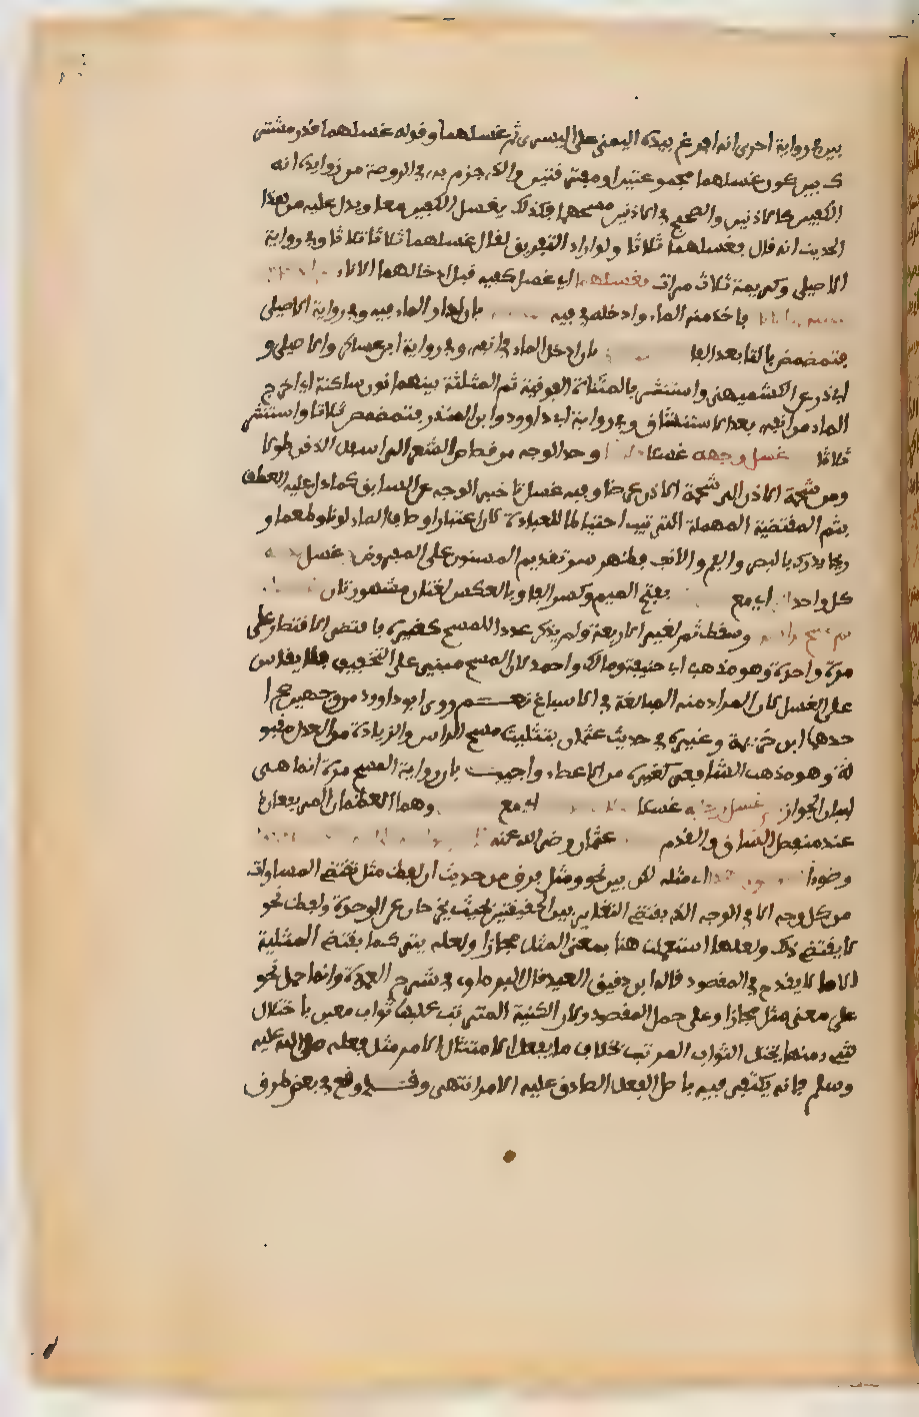 بين وفي رواية اخرى انه افرغ بيده اليمنى على اليسرى ثم غسلهما وقوله غسلهما قدر مشترك
بين كون غسلهما مجموعتين او مفترقتين والذي جزم به في الروضة من زوايده انه
الكفين كالاذنين والصحيح في الاذنين مسحهما فكذلك يغسل الكفين معا ويدل عليه من هذا
الحديث انه قال فغسلهما ثلاثا ولو اراد التفريق لقال غسلهما ثلاثا ثلاثا وفي رواية
الاصيلي وكريمة ثلاث مرات فغسلهما اي غسل كفيه قبل ادخالهما الاناء
فاخذ منه الماء وادخله في فيه بان ادار الماء فيه وفي رواية الاصيلي
فتمضمض بالتا بعد الفا بان ادخل الماء في انفه وفي رواية ابن عساكر والاصيلي و
ابي ذر عن الكشميهني واستنثر بالمثناة الفوقية ثم المثلثة بينهما نون ساكنة اي اخرج
الماء من انفه بعد الاستنشاق وفي رواية ابي داوود وابن المنذر فتمضمض ثلاثا واستنثر
ثلاثا غسل وجهه غسلا وحد الوجه من قصاص الشعر الى اسفل الذقن طولا
ومن شحمة الاذن الى شحمة الاذن عرضا وفيه غسل تاخير الوجه عن السابق كما دل عليه العطف
بثم المقتضية المهملة التي احتياطا للعبادة لان اعتبار اوصاف الماء لونا وطعما و
ريحا يدرك بالبصر والفم والانف فظهر سر تقديم المسنون على المفروض غسل
كل واحد اي مع بفتح الميم وكسر الفا وبالعكس لغتان مشهورتان
وسقط ثم لغير الاربعة ولم يذكر عددا للمسح كغيره فاقتضى الاقتصار على
مرة واحدة وهو مذهب ابي حنيفة ومالك واحمد لان المسح مبني على التخفيف فلا يقاس
على الغسل لان المراد منه المبالغة في الاسباغ نعم روى ابو داوود من وجهين صحح ا
حدهما ابن خزيمة وغيره في حديث عثمان بتثليث مسح الراس والزيادة من العدل مقبو
لة وهو مذهب الشافعي كغيره من الاعضاء واجيب بان رواية المسح مرة انما هي
لبيان الجواز غسل رجليه غسلا اي مع وهما العظمان المرتفعان
عند مفصل الساق والقدم عثمان رضي الله عنه
وضوءا اي مثله لكن بين نحو ومثل فرق من حديث ان لفظ مثل تقتضي المساوات
من كل وجه الا في الوجه الذي يقتضي التغاير بين الحقيقتين بحيث يخرجان عن الوحدة ولفظ نحو
لا يقتضي ذلك ولعلها استعملت هنا بمعنى المثل مجازا ولعله يترك كما يقتضي المثلية
الا ما لا يقدح في المقصود قاله ابن دقيق العيد قال البرماوي في شرح العمدة وانما حمل نحو
على معنى مثل مجازا وعلى جمل المقصود لان الكيفية المترتب عليها ثواب معين باختلال
شيء منها يختل الثواب المرتب بخلاف ما يفعل لامتثال الامر مثل فعله صلى الله عليه
وسلم فانه يكتفى فيه باصل الفعل الصادق عليه الامر انتهى وقد وقع في بعض طرق